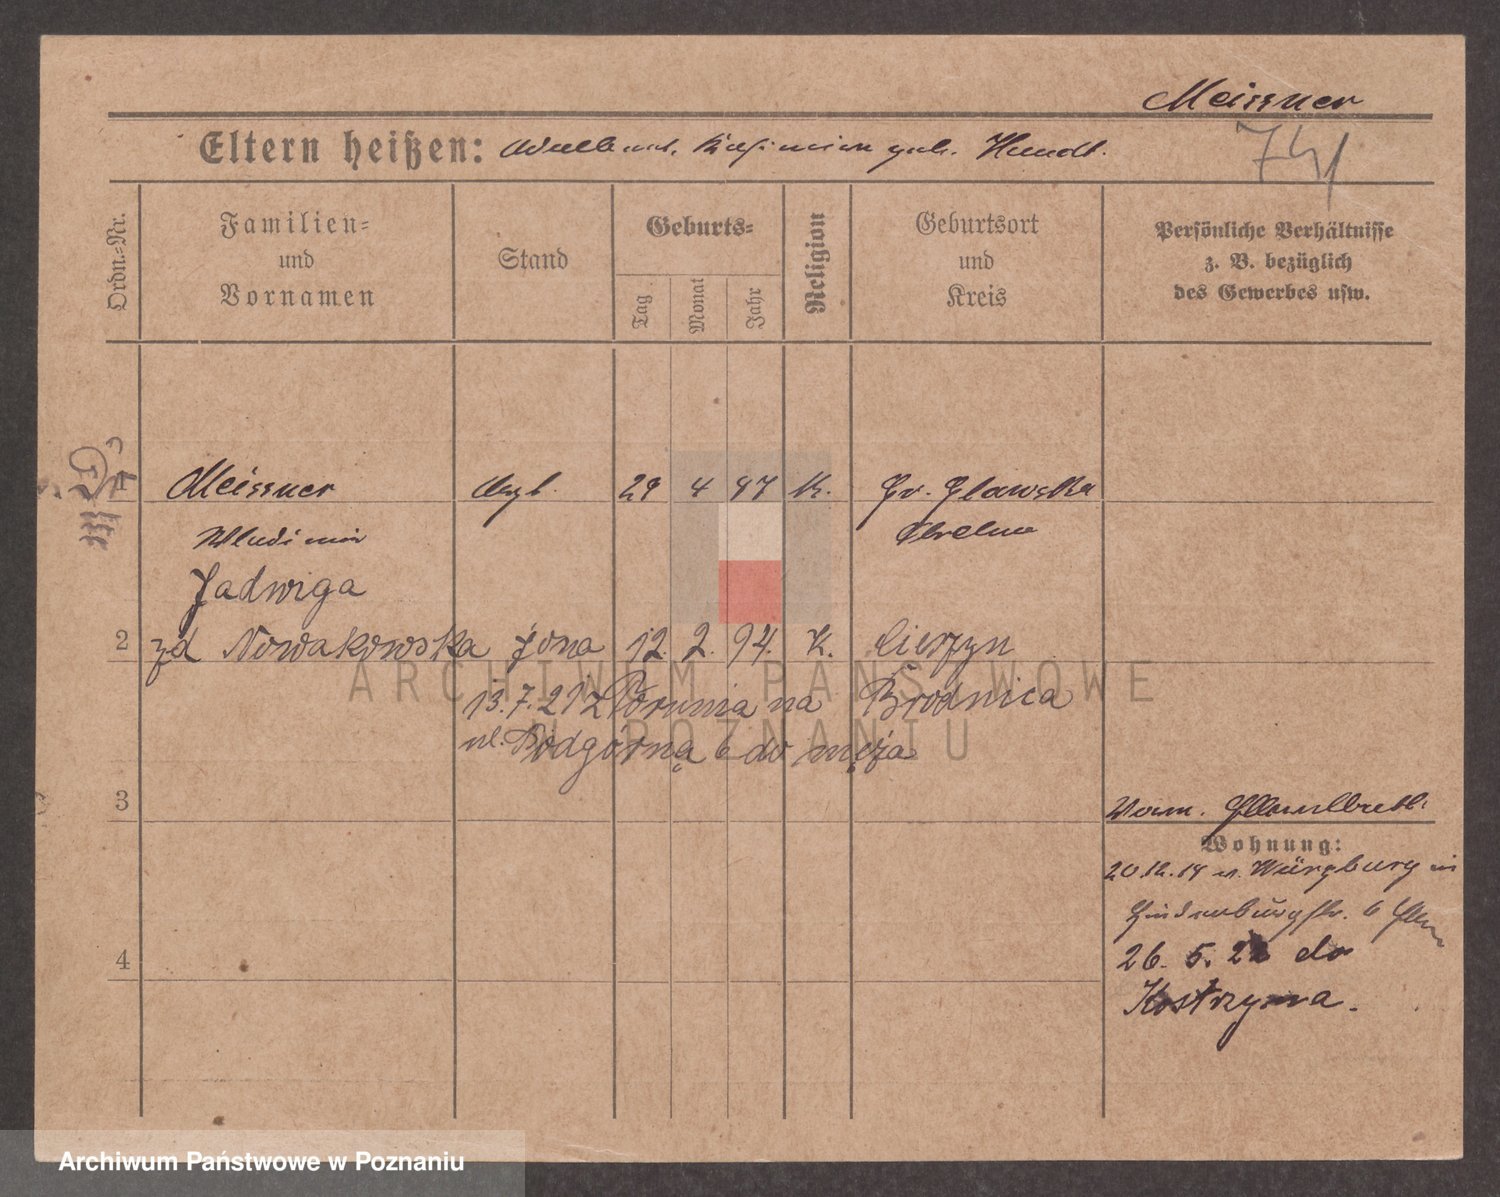 Meissner
Eltern heißen: Adalbert, Kasimira geb. Hundt.
74
Ordn.=Nr.
Familien=
und
Vornamen
Stand
Geburts=
Tag
Monat
Jahr
Religion
Geburtsort
und
Kreis
Persönliche Verhältnisse
z. B. bezüglich
des Gewerbes usw.
1
Meissner 29 4 97 K.
Wladimir
Jadwiga
2
zd Nowakowska żona 12. 2. 94. K. Cieszyn
13.7.21 z Torunia na Brodnica
ul. Podgórną 6 do męża
3
Wohnung:
20.12.19 v. Würzburg in
Hindenburgstr. 6
4
26. 5. 22 do
Kostrzyna.
ARCHIWUM PAŃSTWOWE
W POZNANIU
Archiwum Państwowe w Poznaniu